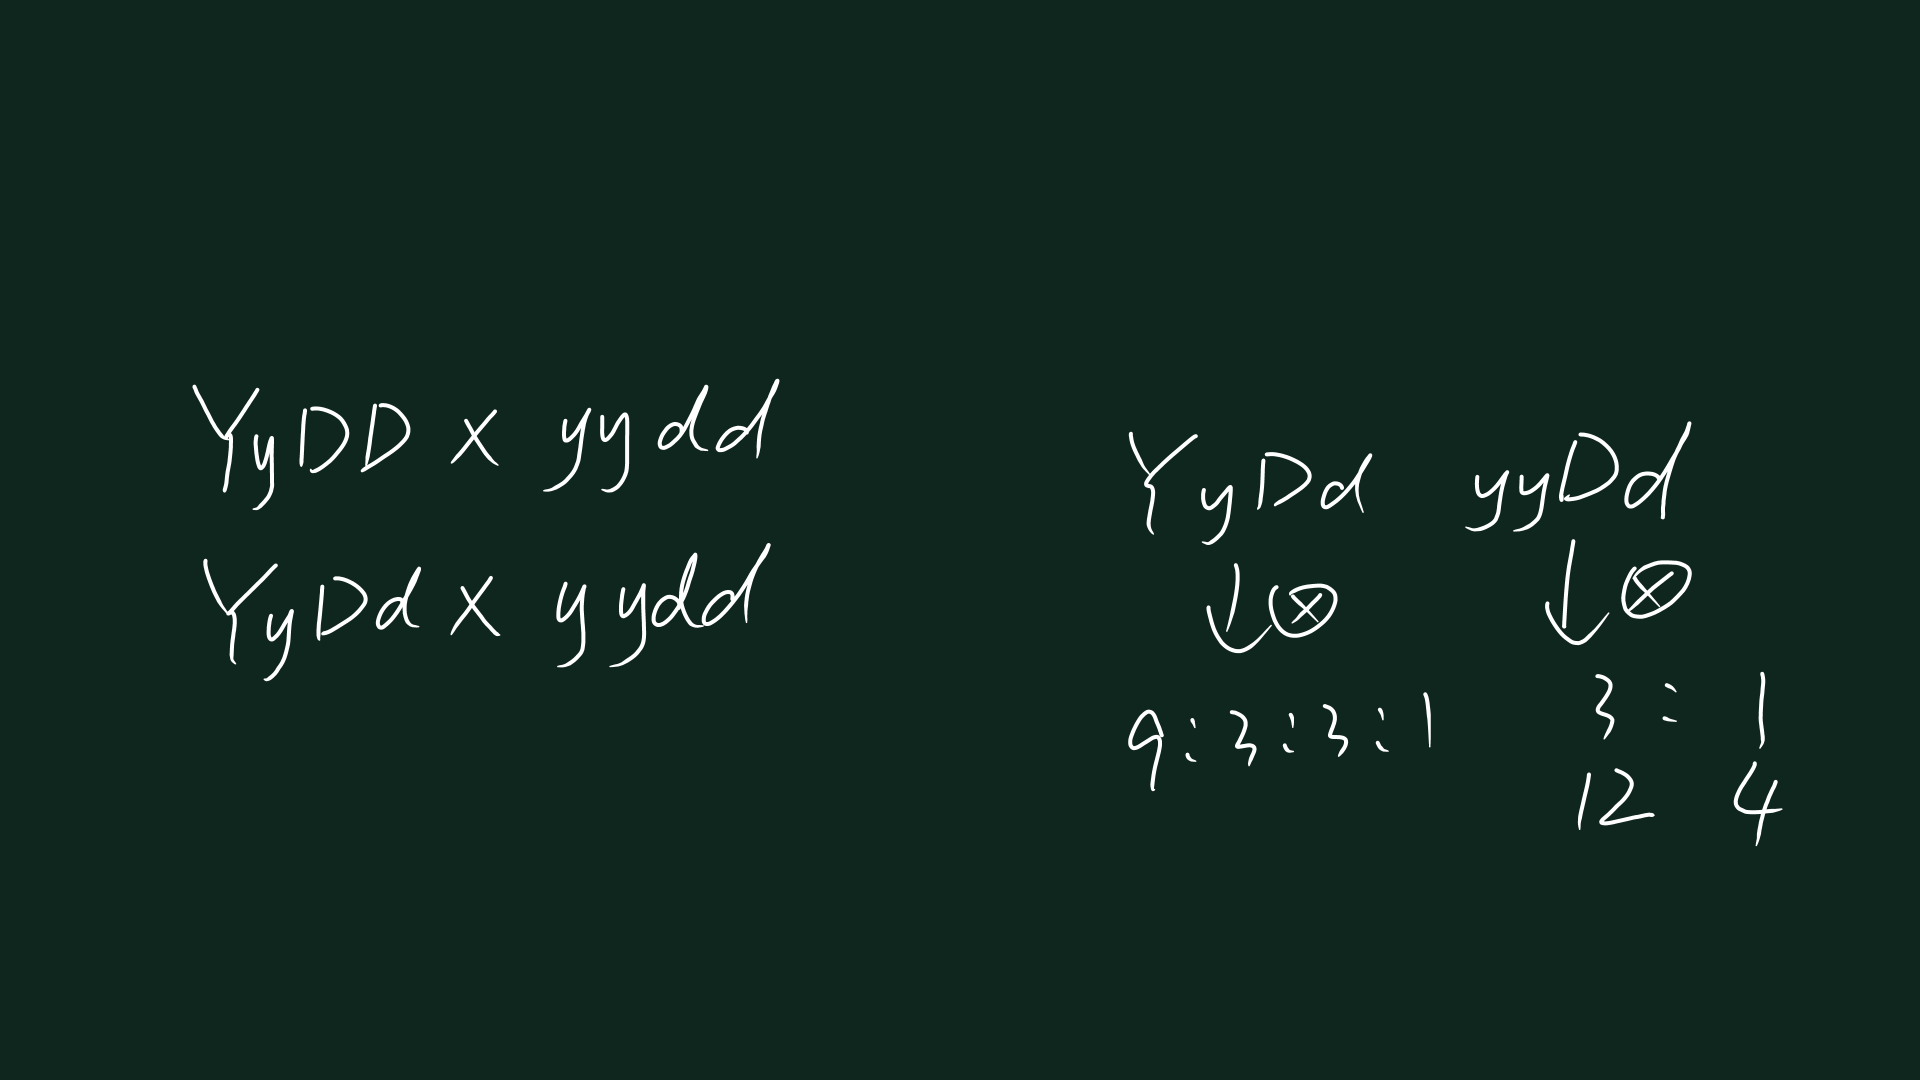 YyDD x yydd
YyDd x yydd
YyDd yyDd
↓⊗ ↓⊗
9:3:3:1 3:1
12 4